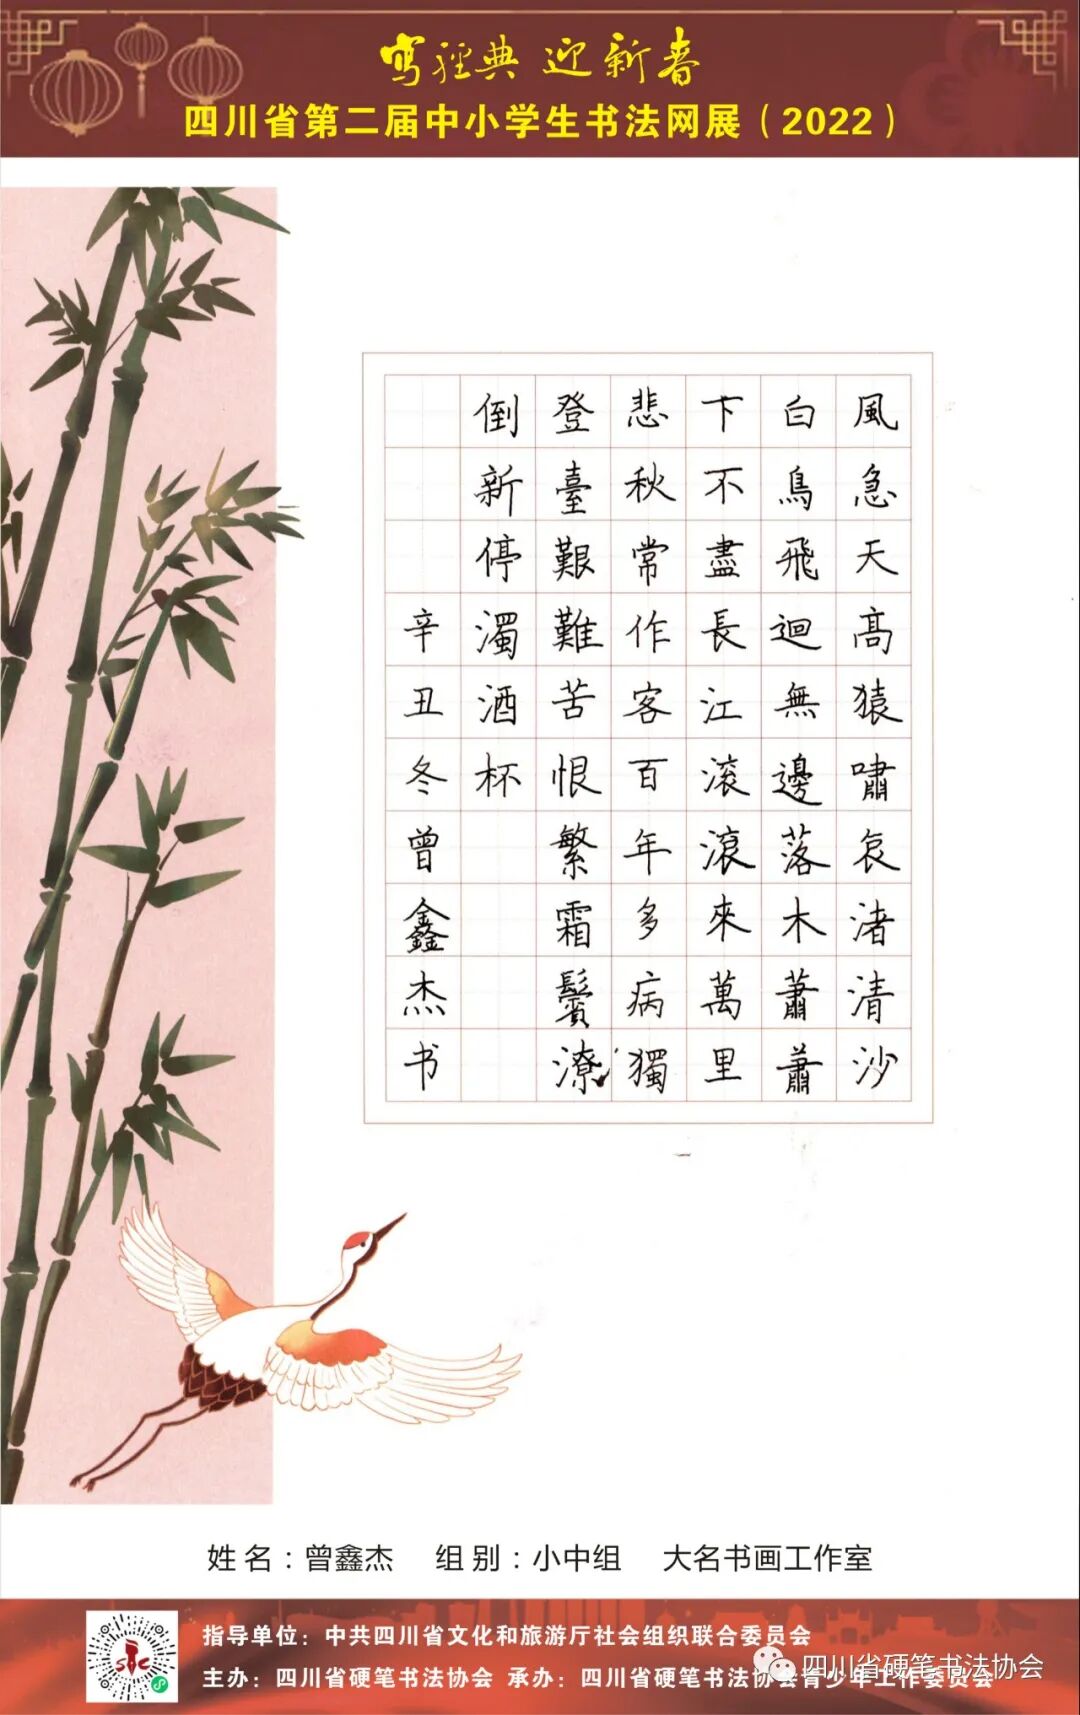 寫經典 迎新春
四川省第二届中小学生书法网展（2022）
風急天高猿嘯哀渚清沙
白鳥飛迴無邊落木蕭蕭
下不盡長江滚滾來萬里
悲秋常作客百年多病獨
登臺艱難苦恨繁霜鬢潦
倒新停濁酒杯
辛丑冬曾鑫杰书
姓名：曾鑫杰 组别：小中组 大名书画工作室
指导单位：中共四川省文化和旅游厅社会组织联合委员会
主办：四川省硬笔书法协会 承办：四川省硬笔书法协会青少年工作委员会
四川省硬笔书法协会